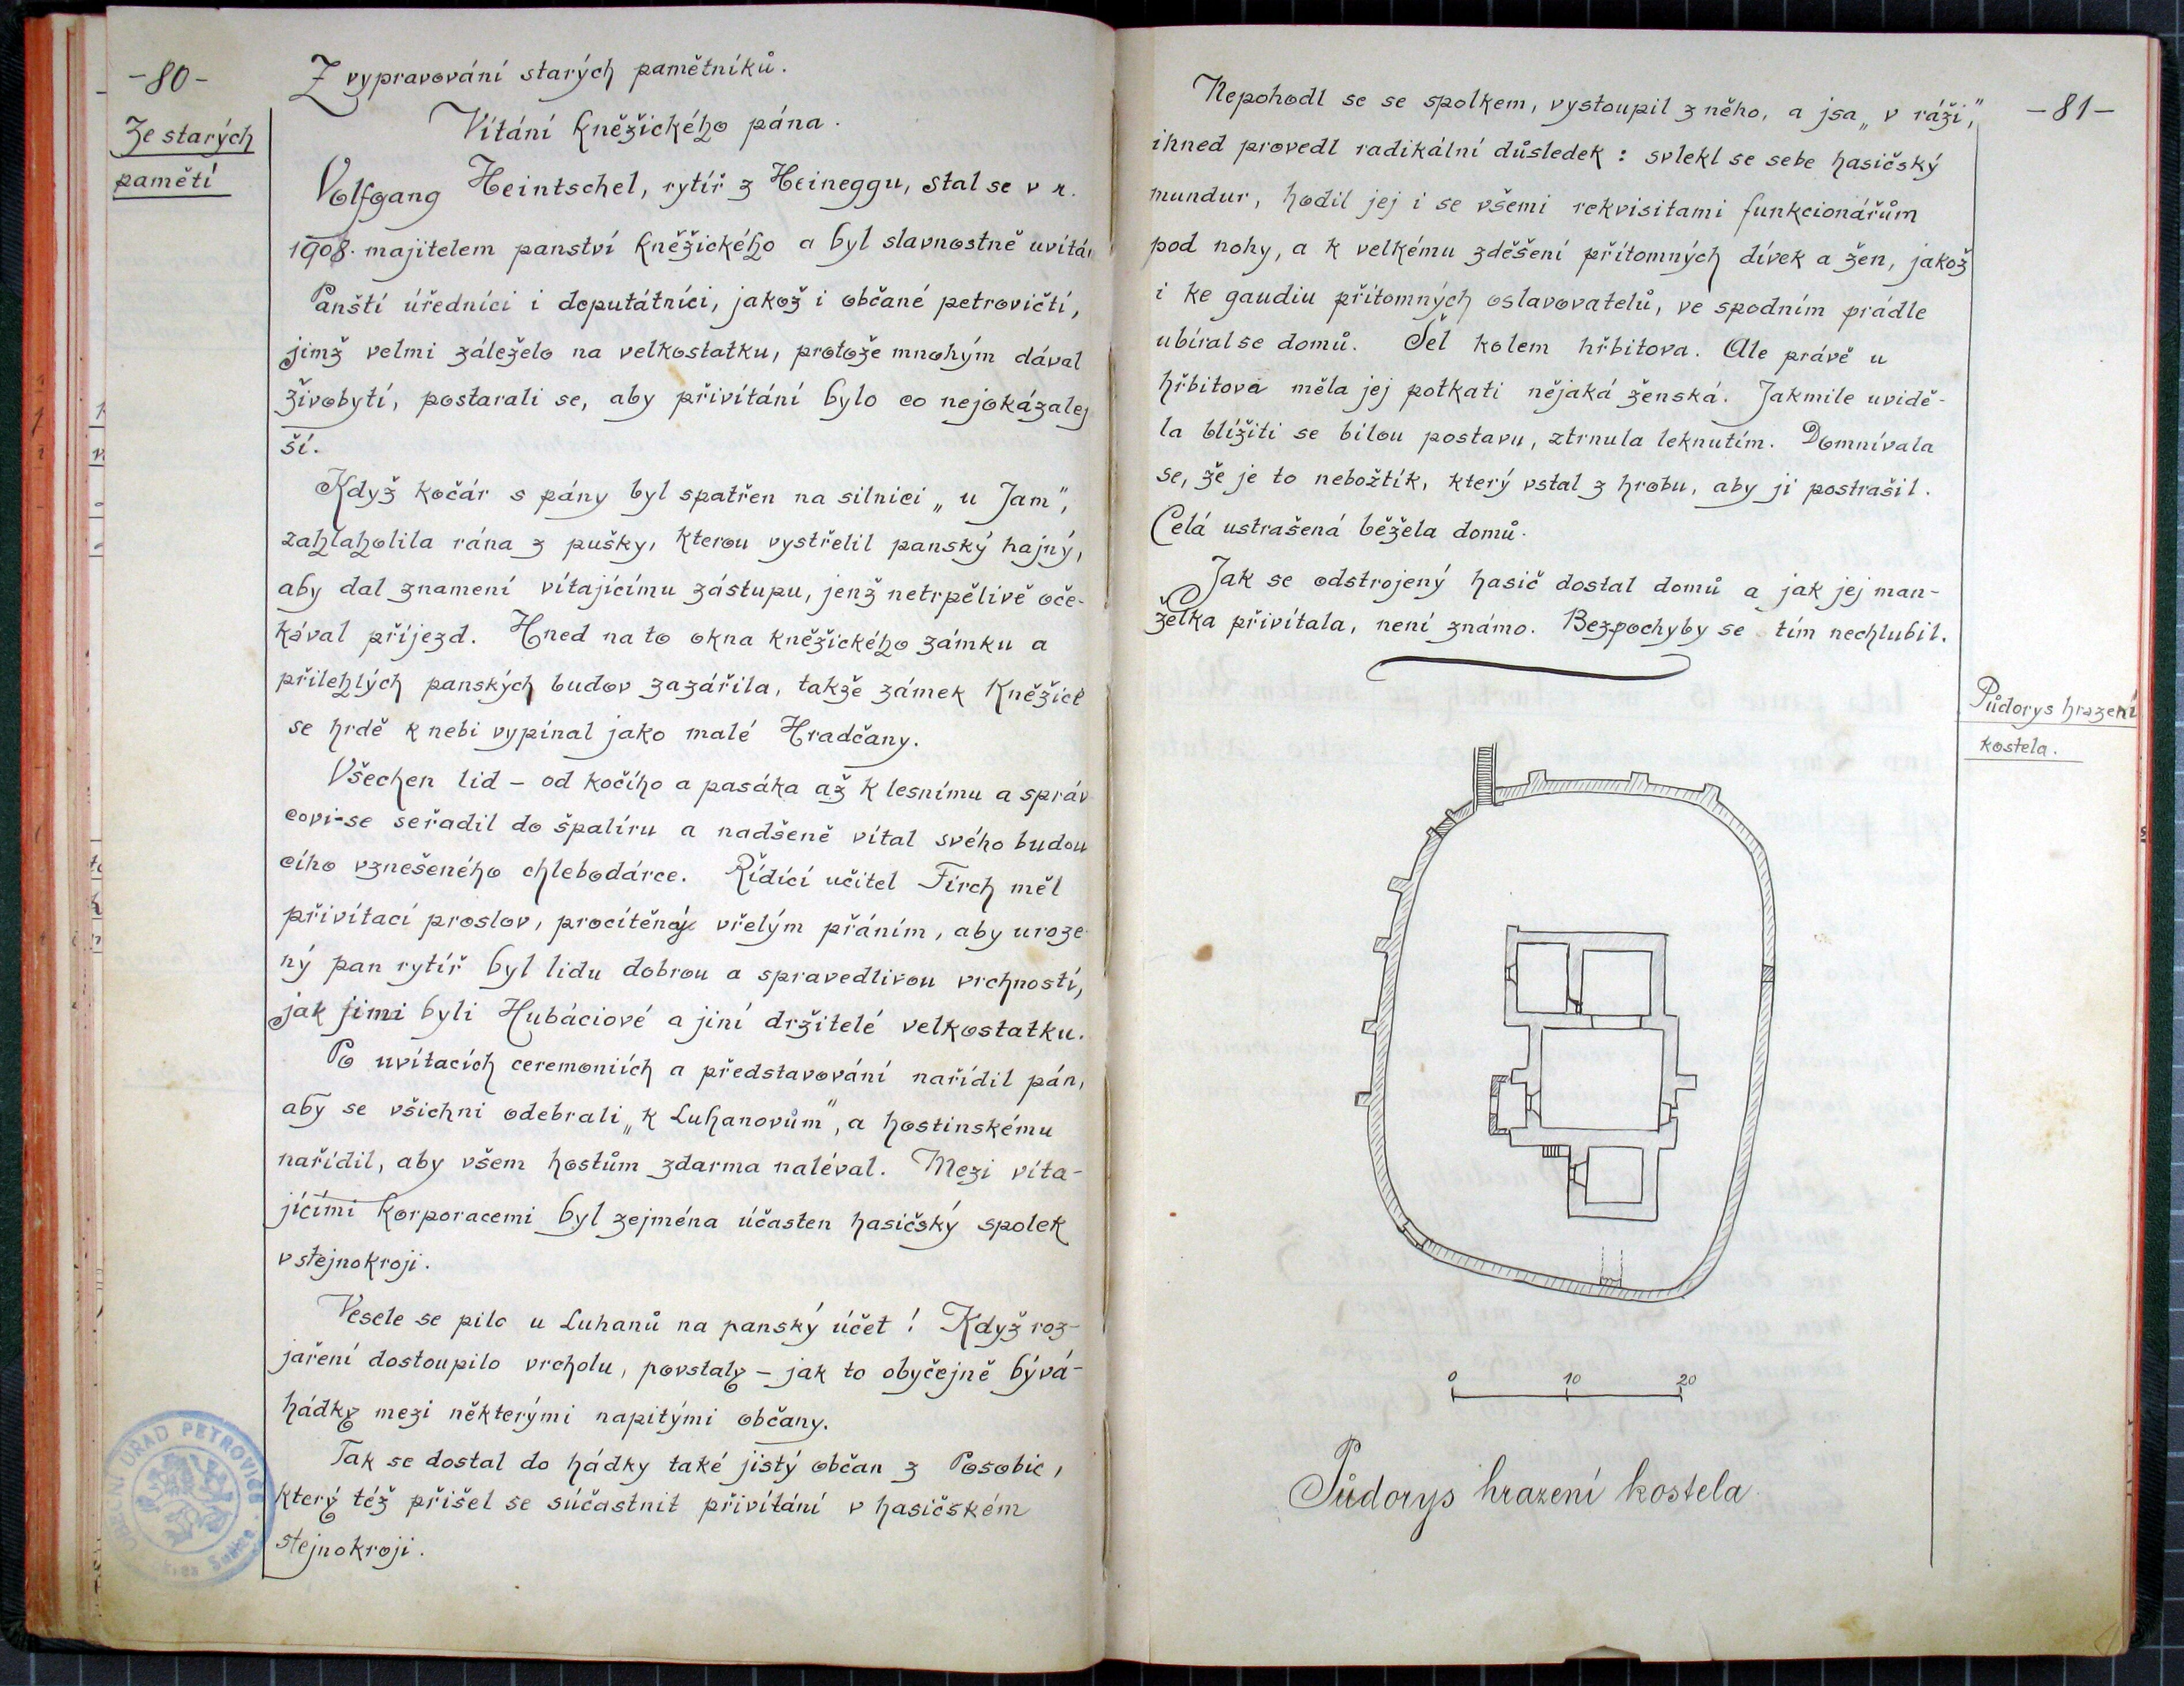 -80-
Ze starých
pamětí
Z vypravování starých pamětníků.
Vítání kněžického pána.
Volfgang Heintschel, rytíř z Heineggu, stal se v r.
1908. majitelem panství kněžického a byl slavnostně uvítán
Panští úředníci i deputátníci, jakož i občané petrovičtí,
jimž velmi záleželo na velkostatku, protože mnohým dával
živobytí, postarali se, aby přivítání bylo co nejokázalej
ší.
Když kočár s pány byl spatřen na silnici „u Jam",
zahlaholila rána z pušky, kterou vystřelil panský hajný,
aby dal znamení vítajícímu zástupu, jenž netrpělivě oče-
kával příjezd. Hned na to okna kněžického zámku a
přilehlých panských budov zazářila, takže zámek Kněžice
se hrdě k nebi vypínal jako malé Hradčany.
Všechen lid - od kočího a pasáka až k lesnímu a správ
covi-se seřadil do špalíru a nadšeně vítal svého budou
cího vznešeného chlebodárce. Řídící učitel Firch měl
přivítací proslov, procítěný vřelým přáním, aby uroze
ný pan rytíř byl lidu dobrou a spravedlivou vrchností,
jak jimi byli Hubáciové a jiní držitelé velkostatku.
Po uvítacích ceremoniích a představování nařídil pán,
aby se všichni odebrali „k Luhanovům", a hostinskému
nařídil, aby všem hostům zdarma naléval. Mezi víta-
jícími korporacemi byl zejména účasten hasičský spolek
v stejnokroji.
Vesele se pilo u Luhanů na panský účet! Když roz-
jaření dostoupilo vrcholu, povstaly - jak to obyčejně bývá-
hádky mezi některými napitými občany.
Tak se dostal do hádky také jistý občan z Posobic,
který též přišel se súčastnit přivítání v hasičském
stejnokroji.
OBECNÍ ÚŘAD PETROVICE
-81-
Nepohodl se se spolkem, vystoupil z něho, a jsa „v ráži",
ihned provedl radikální důsledek: svlekl se sebe hasičský
mundur, hodil jej i se všemi rekvisitami funkcionářům
pod nohy, a k velkému zděšení přítomných dívek a žen, jakož
i ke gaudiu přítomných oslavovatelů, ve spodním prádle
ubíral se domů. Šel kolem hřbitova. Ale právě u
hřbitova měla jej potkati nějaká ženská. Jakmile uvidě-
la blížiti se bílou postavu, ztrnula leknutím. Domnívala
se, že je to nebožtík, který vstal z hrobu, aby ji postrašil.
Celá ustrašená běžela domů.
Jak se odstrojený hasič dostal domů a jak jej man-
želka přivítala, není známo. Bezpochyby se tím nechlubil.
Půdorys hrazení
kostela.
0 10 20
Půdorys hrazení kostela